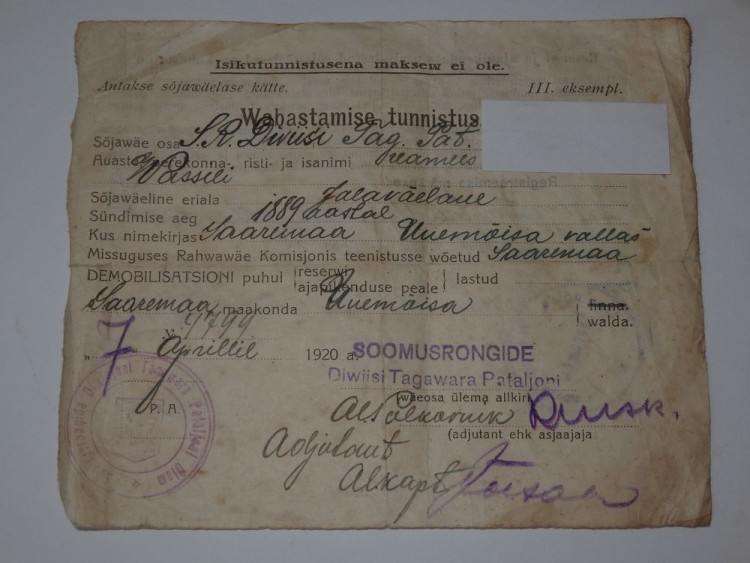 Isikutunnistusena maksew ei ole.
Antakse sõjawäelase kätte. III. eksempl.
Wabastamise tunnistus
Sõjawäe osa S. R. Diwiisi Tag. Pat.
Auaste, perekonna-, risti- ja isanimi reamees
Wassili
Sõjawäeline eriala Jalaväelane
Sündimise aeg 1889 aastal
Kus nimekirjas Saaremaa Uuemõisa vallas
Missuguses Rahwawäe Komisjonis teenistusse wõetud Saaremaa
DEMOBILISATSIONI puhul (reserwi
ajapikenduse peale) lastud
Saaremaa maakonda Uuemõisa (linna.
walda.
№ 4799
„ 7 Aprillil 1920 a.
SOOMUSRONGIDE
Diwiisi Tagawara Pataljoni
P. A.
(wäeosa ülema allkiri
Alpolkovnik
(adjutant ehk asjaajaja
Adjutant
Alkapt.